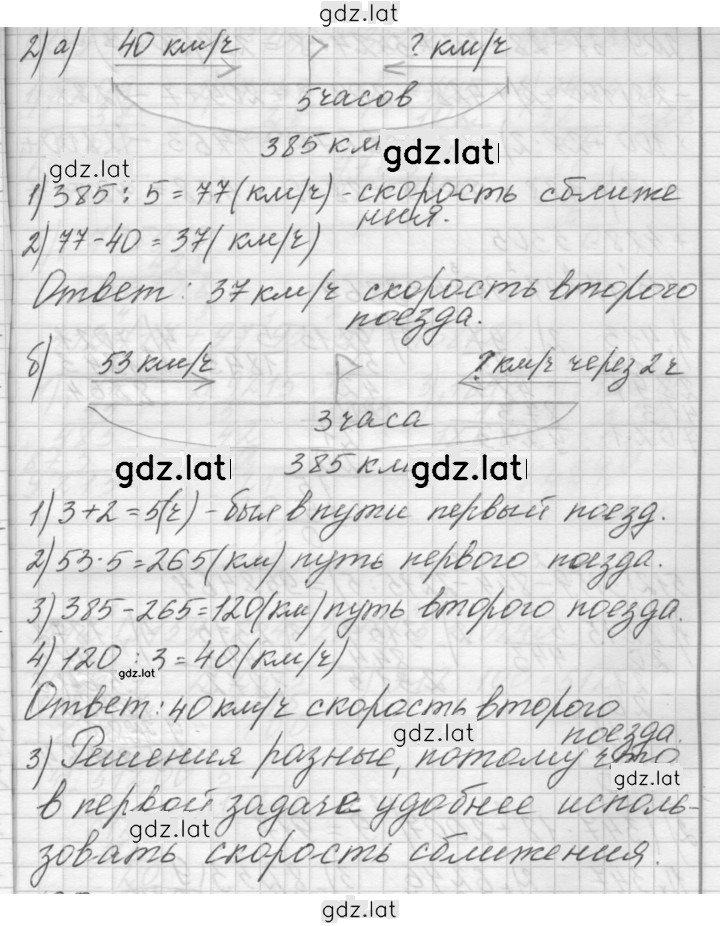 gdz.lat
2) а) 40 км/ч ? км/ч
5 часов
385 км gdz.lat
gdz.lat
1) 385 : 5 = 77 (км/ч) - скорость сближе
ния.
2) 77 - 40 = 37 (км/ч)
Ответ: 37 км/ч скорость второго
поезда.
б) 53 км/ч ? км/ч через 2 ч
3 часа
gdz.lat 385 км gdz.lat
1) 3 + 2 = 5 (ч) - был в пути первый поезд.
2) 53 · 5 = 265 (км) путь первого поезда.
3) 385 - 265 = 120 (км) путь второго поезда.
4) 120 : 3 = 40 (км/ч)
gdz.lat
Ответ: 40 км/ч скорость второго
gdz.lat поезда.
3) Решения разные, потому что
gdz.lat
в первой задаче удобнее исполь-
gdz.lat
зовать скорость сближения.
gdz.lat